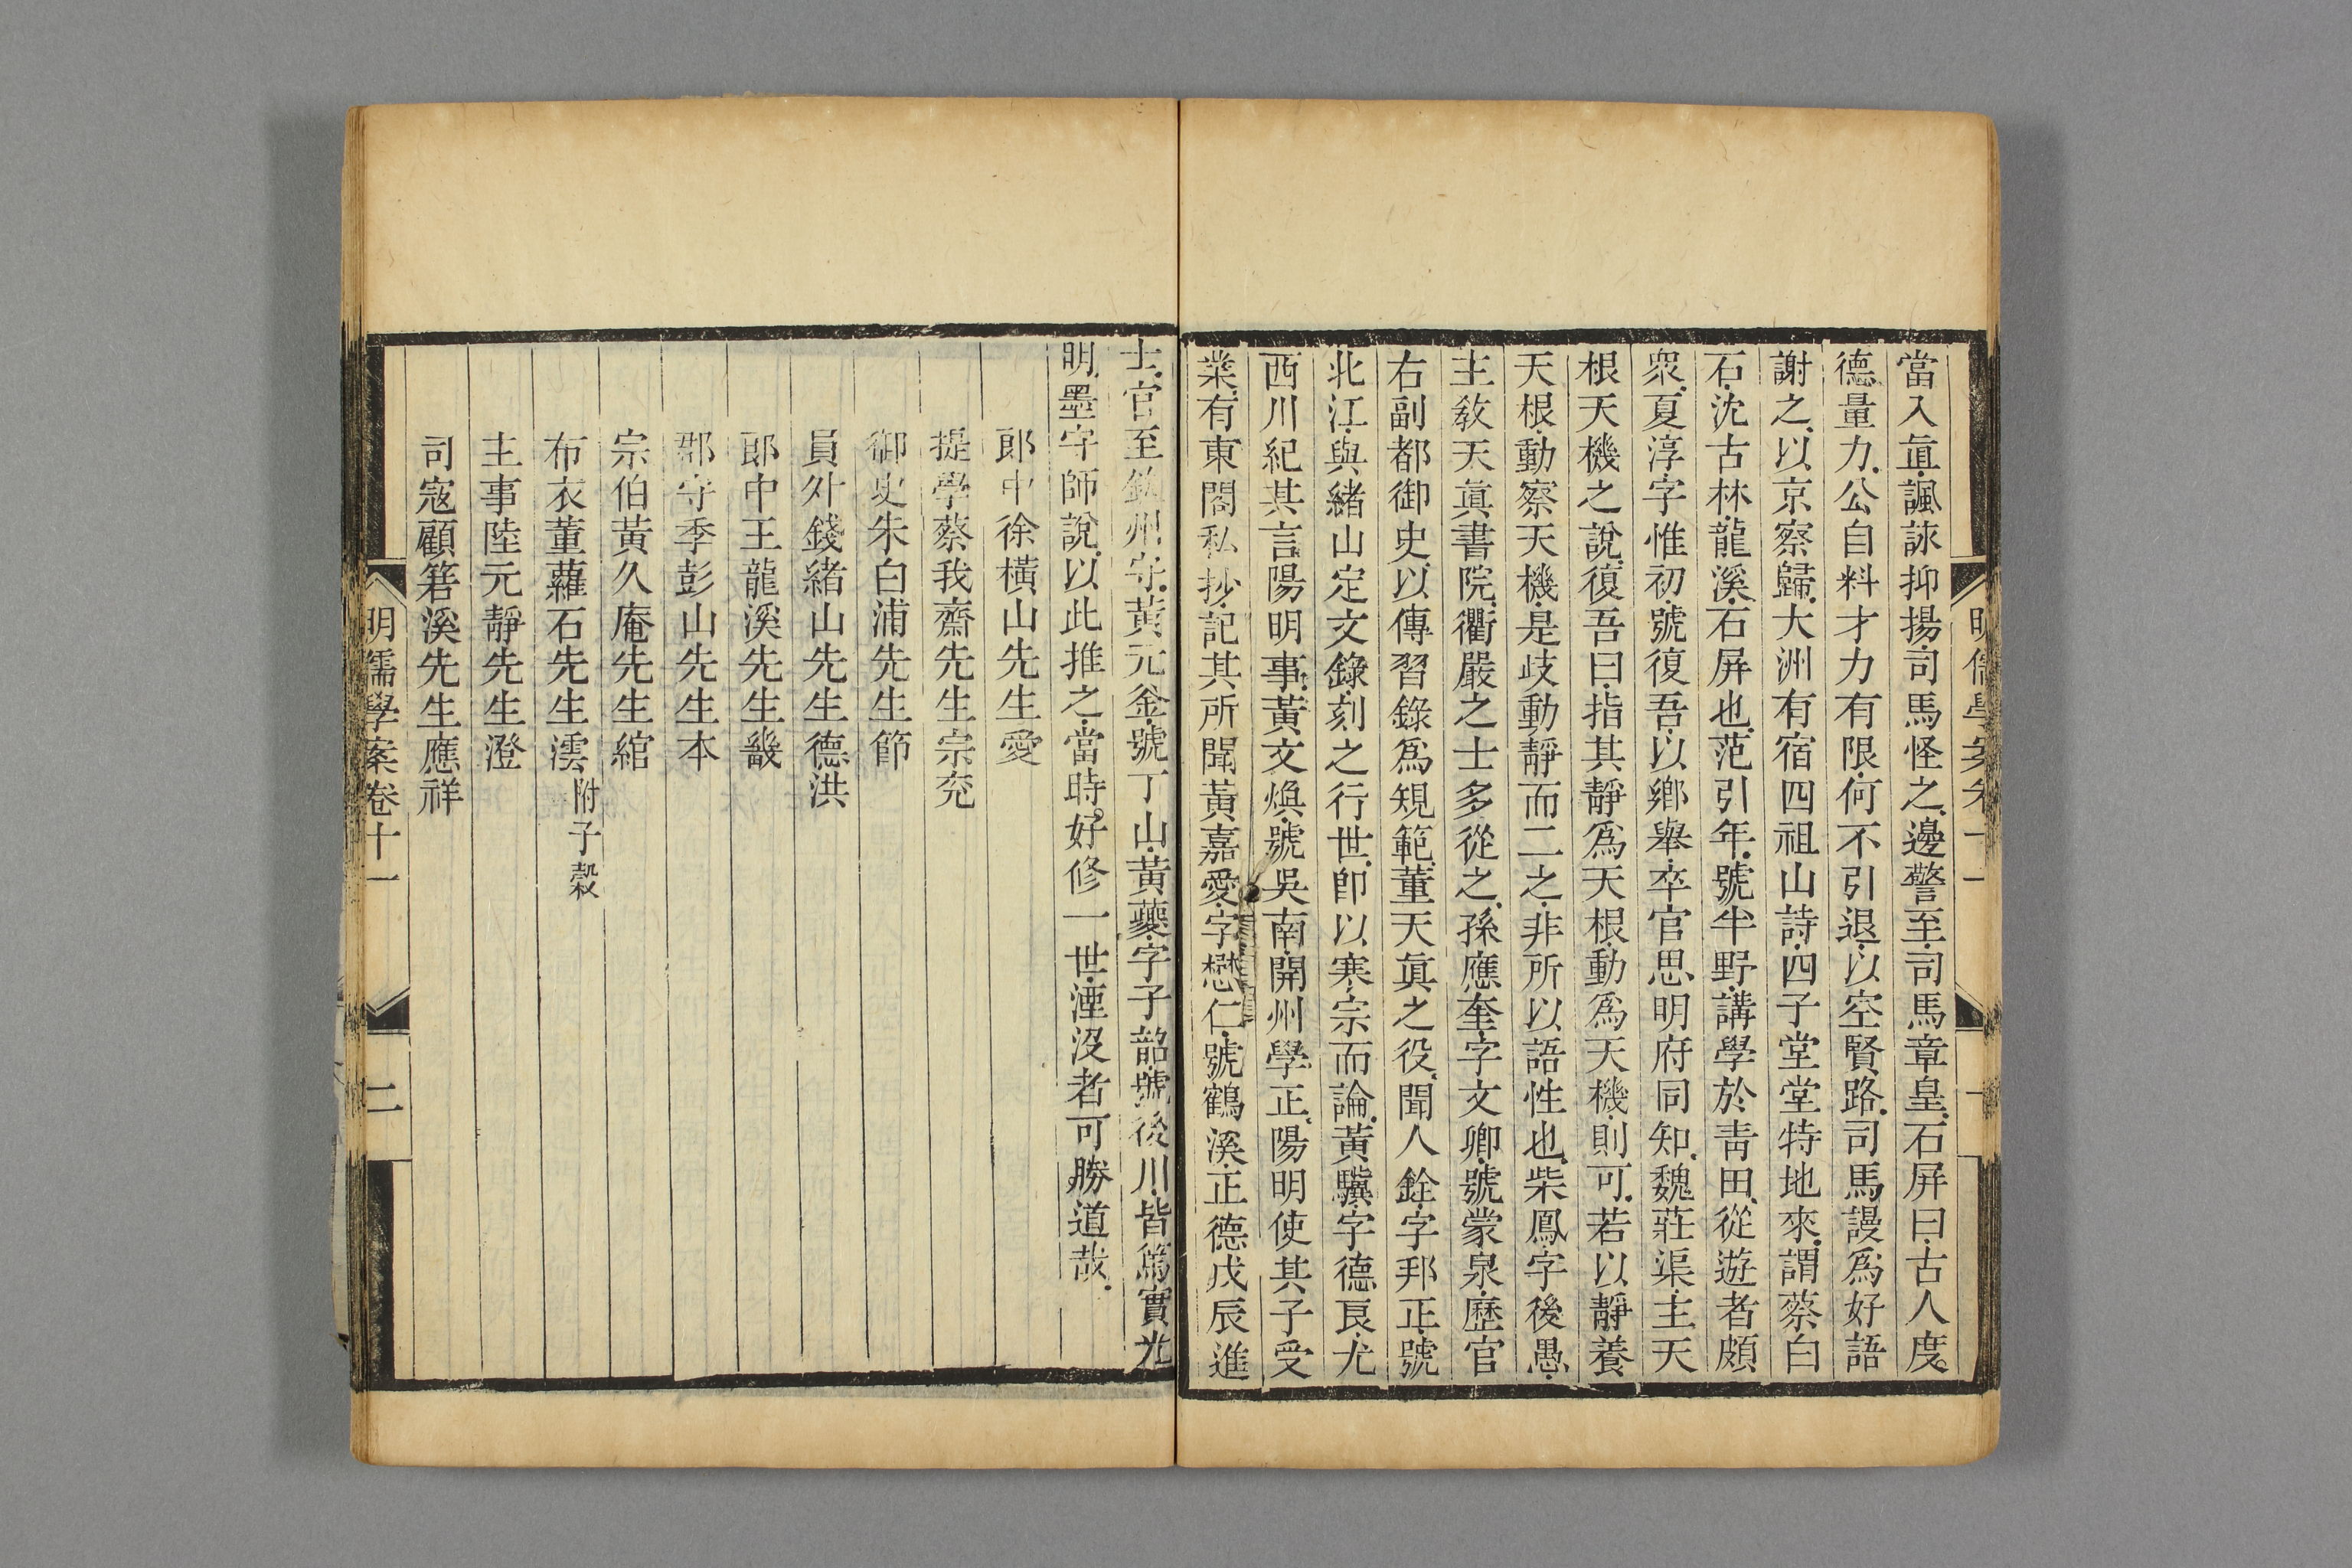 明儒學案卷十一
一
當入直諷詠抑揚司馬怪之邊警至司馬章皇石屏曰古人度
德量力公自料才力有限何不引退以空賢路司馬謾爲好語
謝之以京察歸大洲有宿四祖山詩四子堂堂特地來謂蔡白
石沈古林龍溪石屏也范引年號半野講學於靑田從遊者頗
衆夏淳字惟初號復吾以鄉舉卒官思明府同知魏莊渠主天
根天機之說復吾曰指其靜爲天根動爲天機則可若以靜養
天根動察天機是歧動靜而二之非所以語性也柴鳳字後愚
主敎天眞書院衢嚴之士多從之孫應奎字文卿號蒙泉歷官
右副都御史以傳習錄爲規範董天眞之役聞人銓字邦正號
北江與緒山定文錄刻之行世卽以寒宗而論黃驥字德良尤
西川紀其言陽明事黃文煥號吳南開州學正陽明使其子受
業有東閣私抄記其所聞黃嘉愛字懋仁號鶴溪正德戊辰進
士官至欽州守黃元釜號丁山黃夔字子韶號後川皆篤實光
明墨守師說以此推之當時好修一世湮没者可勝道哉
郎中徐橫山先生愛
提學蔡我齋先生宗兗
御史朱白浦先生節
員外錢緒山先生德洪
郎中王龍溪先生畿
郡守季彭山先生本
宗伯黃久庵先生綰
布衣董蘿石先生澐附子穀
主事陸元靜先生澄
司寇顧箬溪先生應祥
明儒學案卷十一
二